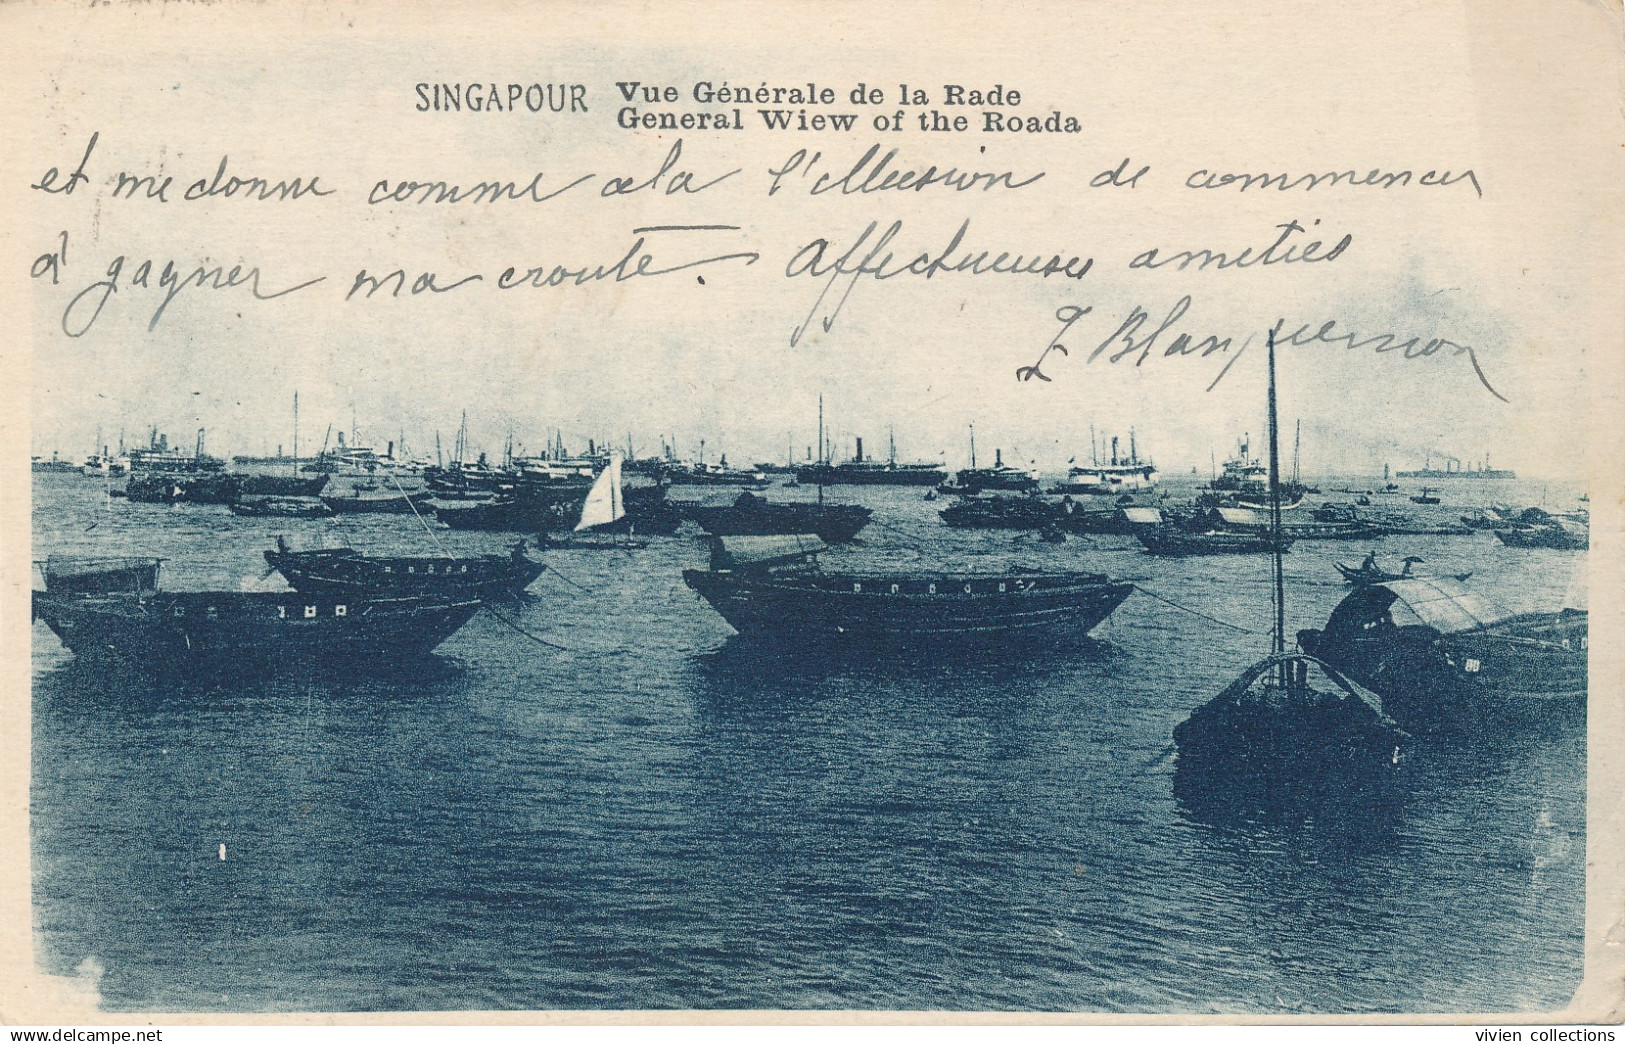 SINGAPOUR Vue Générale de la Rade
General Wiew of the Roada
et me donne comme cela l'illusion de commencer
à gagner ma croute. Affectueuses amitiés
vivien collections